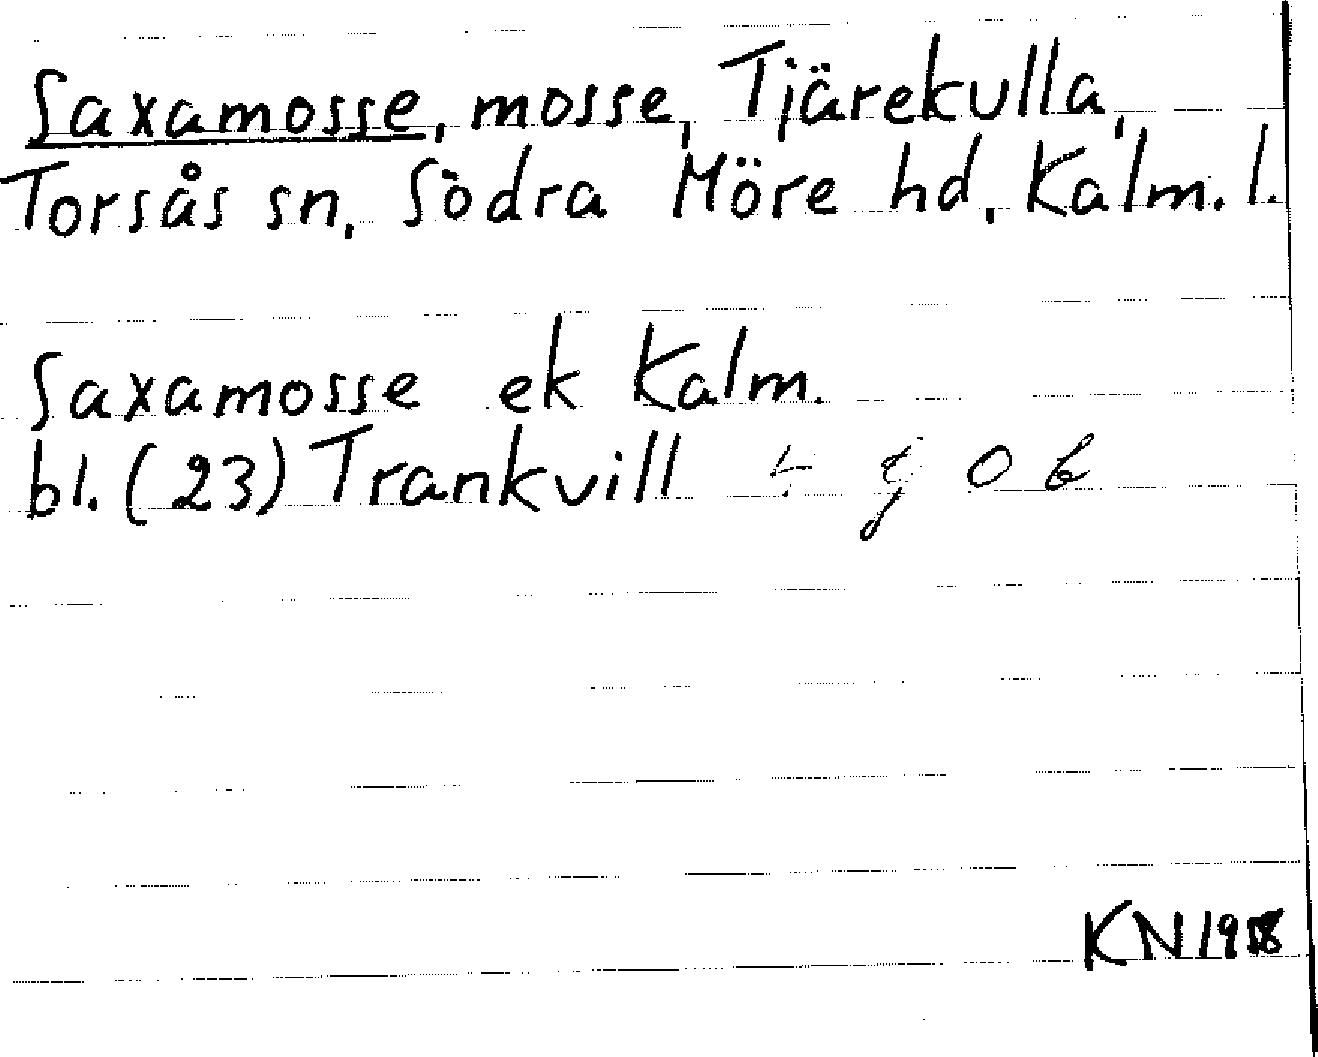 Saxamosse, mosse, Tjärekulla,
Torsås sn, Södra Möre hd, Kalm. l.
Saxamosse ek Kalm.
bl. (23) Trankvill 4 g O b
KN 1958